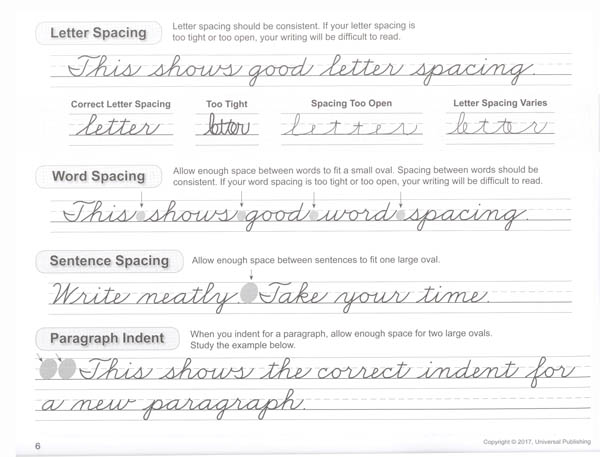 Letter Spacing
Letter spacing should be consistent. If your letter spacing is
too tight or too open, your writing will be difficult to read.
This shows good letter spacing.
Correct Letter Spacing
Too Tight
Spacing Too Open
Letter Spacing Varies
letter
letter
letter
letter
Word Spacing
Allow enough space between words to fit a small oval. Spacing between words should be
consistent. If your word spacing is too tight or too open, your writing will be difficult to read.
This shows good word spacing.
Sentence Spacing
Allow enough space between sentences to fit one large oval.
Write neatly. Take your time.
Paragraph Indent
When you indent for a paragraph, allow enough space for two large ovals.
Study the example below.
This shows the correct indent for
a new paragraph.
6
Copyright © 2017, Universal Publishing